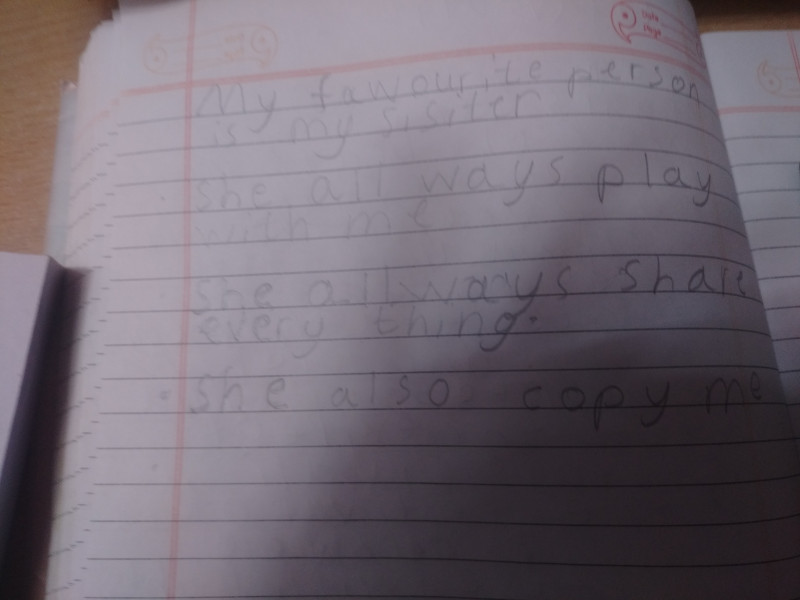 Date
Page
My fawourite person
is my sisiter
she all ways play
with me
she allways share
every thing.
she also copy me